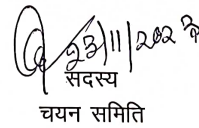 23/11/2023
सदस्य
चयन समिति